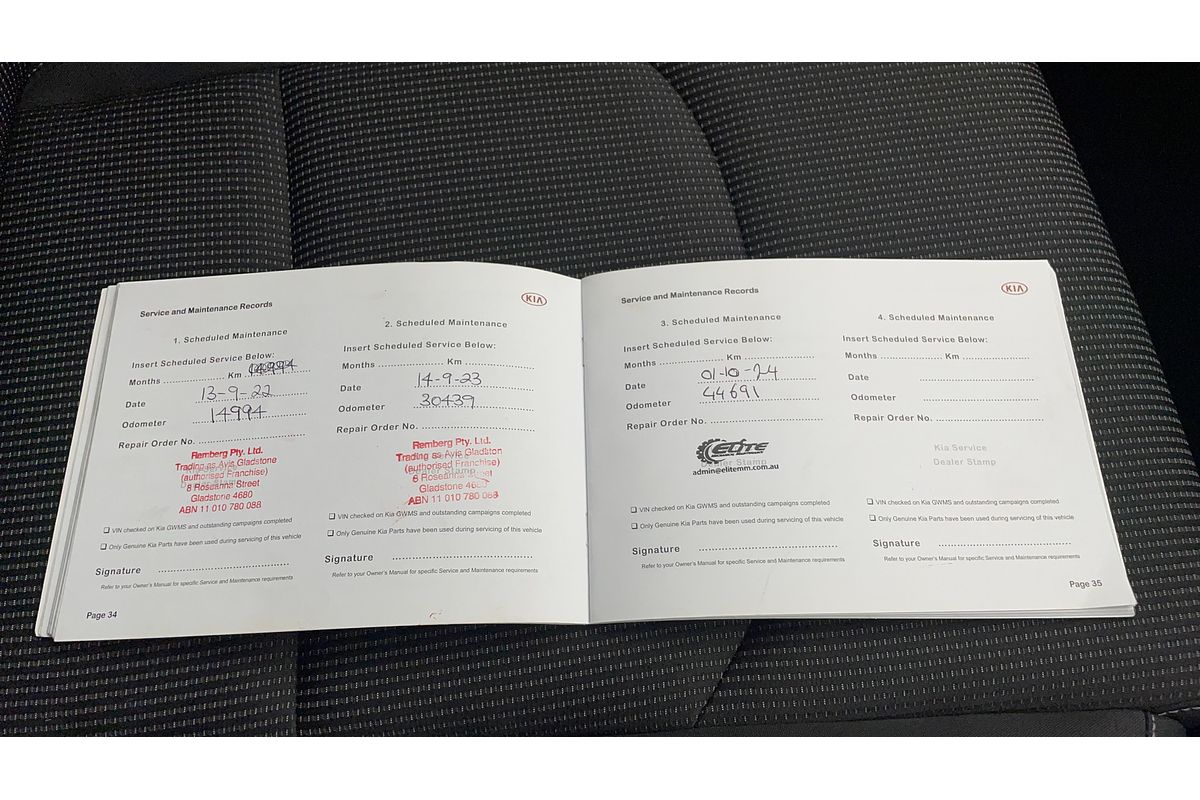 Service and Maintenance Records
KIA
1. Scheduled Maintenance
Insert Scheduled Service Below:
Months .................... Km 14994
Date 13-9-22
Odometer 14994
Repair Order No. ....................
Remberg Pty. Ltd.
Trading as Avis Gladstone
(authorised Franchise)
6 Roseanna Street
Gladstone 4680
ABN 11 010 780 088
❑ VIN checked on Kia GWMS and outstanding campaigns completed
❑ Only Genuine Kia Parts have been used during servicing of this vehicle
Signature ....................
Refer to your Owner's Manual for specific Service and Maintenance requirements
Page 34
2. Scheduled Maintenance
Insert Scheduled Service Below:
Months .................... Km ....................
Date 14-9-23
Odometer 30439
Repair Order No. ....................
Remberg Pty. Ltd.
Trading as Avis Gladston
(authorised Franchise)
6 Roseanna Street
Gladstone
ABN 11 010 780 088
❑ VIN checked on Kia GWMS and outstanding campaigns completed
❑ Only Genuine Kia Parts have been used during servicing of this vehicle
Signature ....................
Refer to your Owner's Manual for specific Service and Maintenance requirements
Service and Maintenance Records
KIA
3. Scheduled Maintenance
Insert Scheduled Service Below:
Months .................... Km ....................
Date 01-10-24
Odometer 44691
Repair Order No. ....................
ELITE
Dealer Stamp
admin@elitemm.com.au
❑ VIN checked on Kia GWMS and outstanding campaigns completed
❑ Only Genuine Kia Parts have been used during servicing of this vehicle
Signature ....................
Refer to your Owner's Manual for specific Service and Maintenance requirements
4. Scheduled Maintenance
Insert Scheduled Service Below:
Months .................... Km ....................
Date ....................
Odometer ....................
Repair Order No. ....................
Kia Service
Dealer Stamp
❑ VIN checked on Kia GWMS and outstanding campaigns completed
❑ Only Genuine Kia Parts have been used during servicing of this vehicle
Signature ....................
Refer to your Owner's Manual for specific Service and Maintenance requirements
Page 35